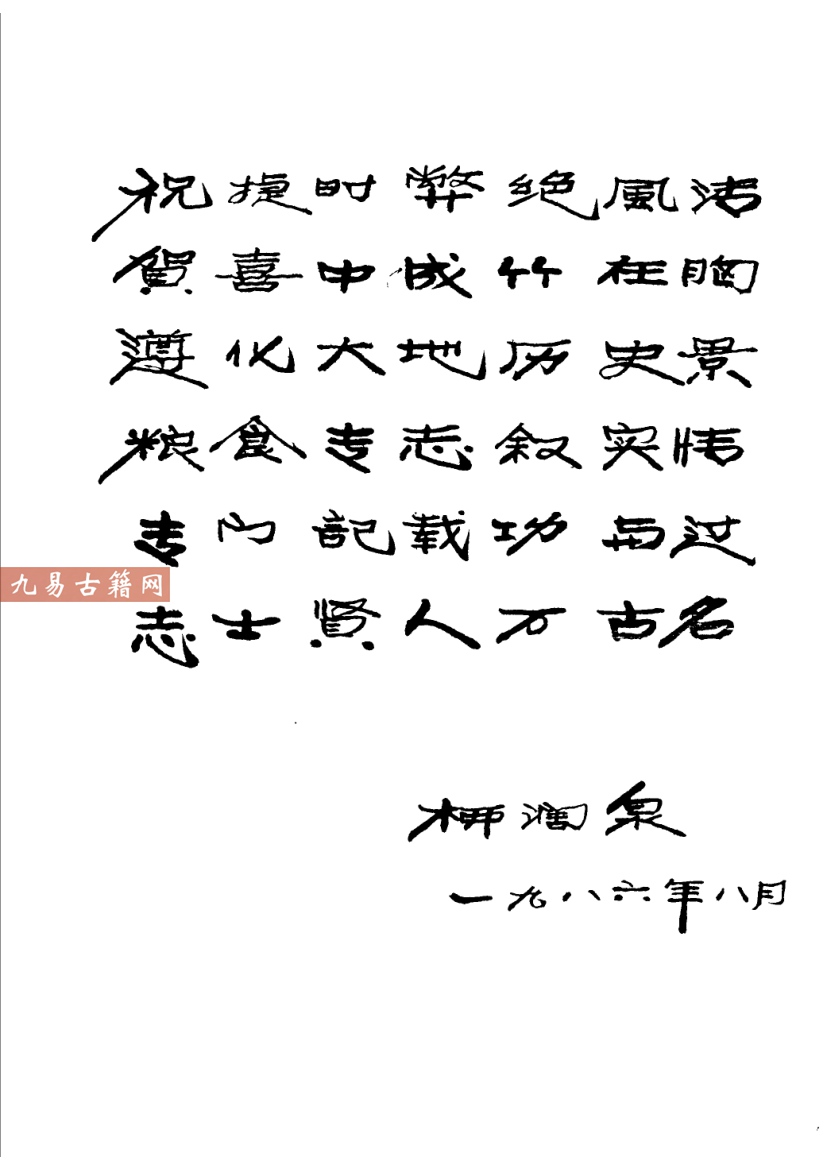 祝捷时弊绝風清
賀喜中成竹在胸
遵化大地历史景
粮食专志叙实情
专门記载功与过
九易古籍网
志士贤人万古名
柳润泉
一九八六年八月